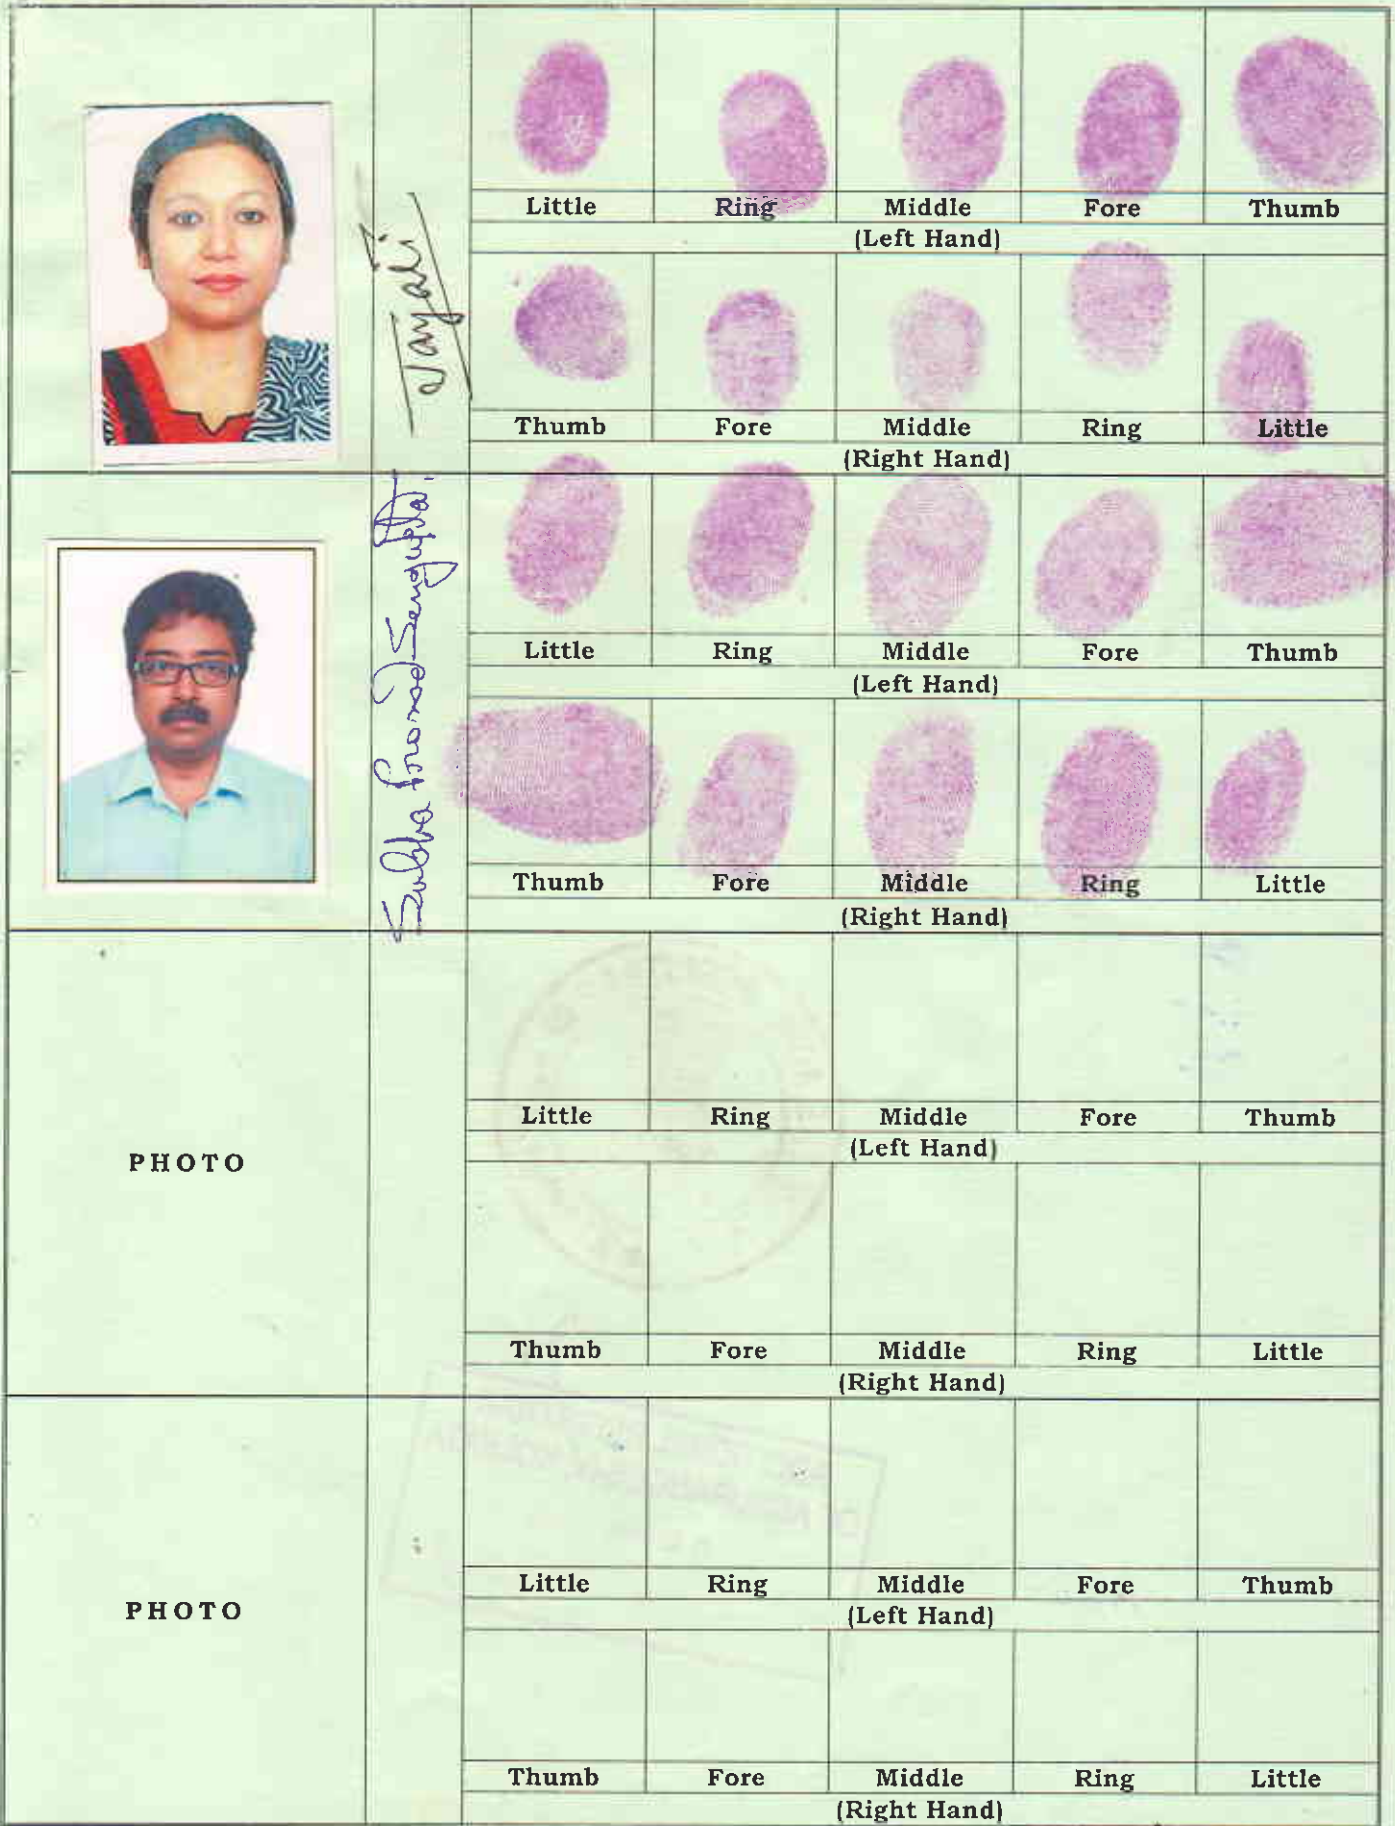 Little Ring Middle Fore Thumb
(Left Hand)
Thumb Fore Middle Ring Little
(Right Hand)
Little Ring Middle Fore Thumb
(Left Hand)
Thumb Fore Middle Ring Little
(Right Hand)
Sengupta.
PHOTO
Little Ring Middle Fore Thumb
(Left Hand)
Thumb Fore Middle Ring Little
(Right Hand)
PHOTO
Little Ring Middle Fore Thumb
(Left Hand)
Thumb Fore Middle Ring Little
(Right Hand)